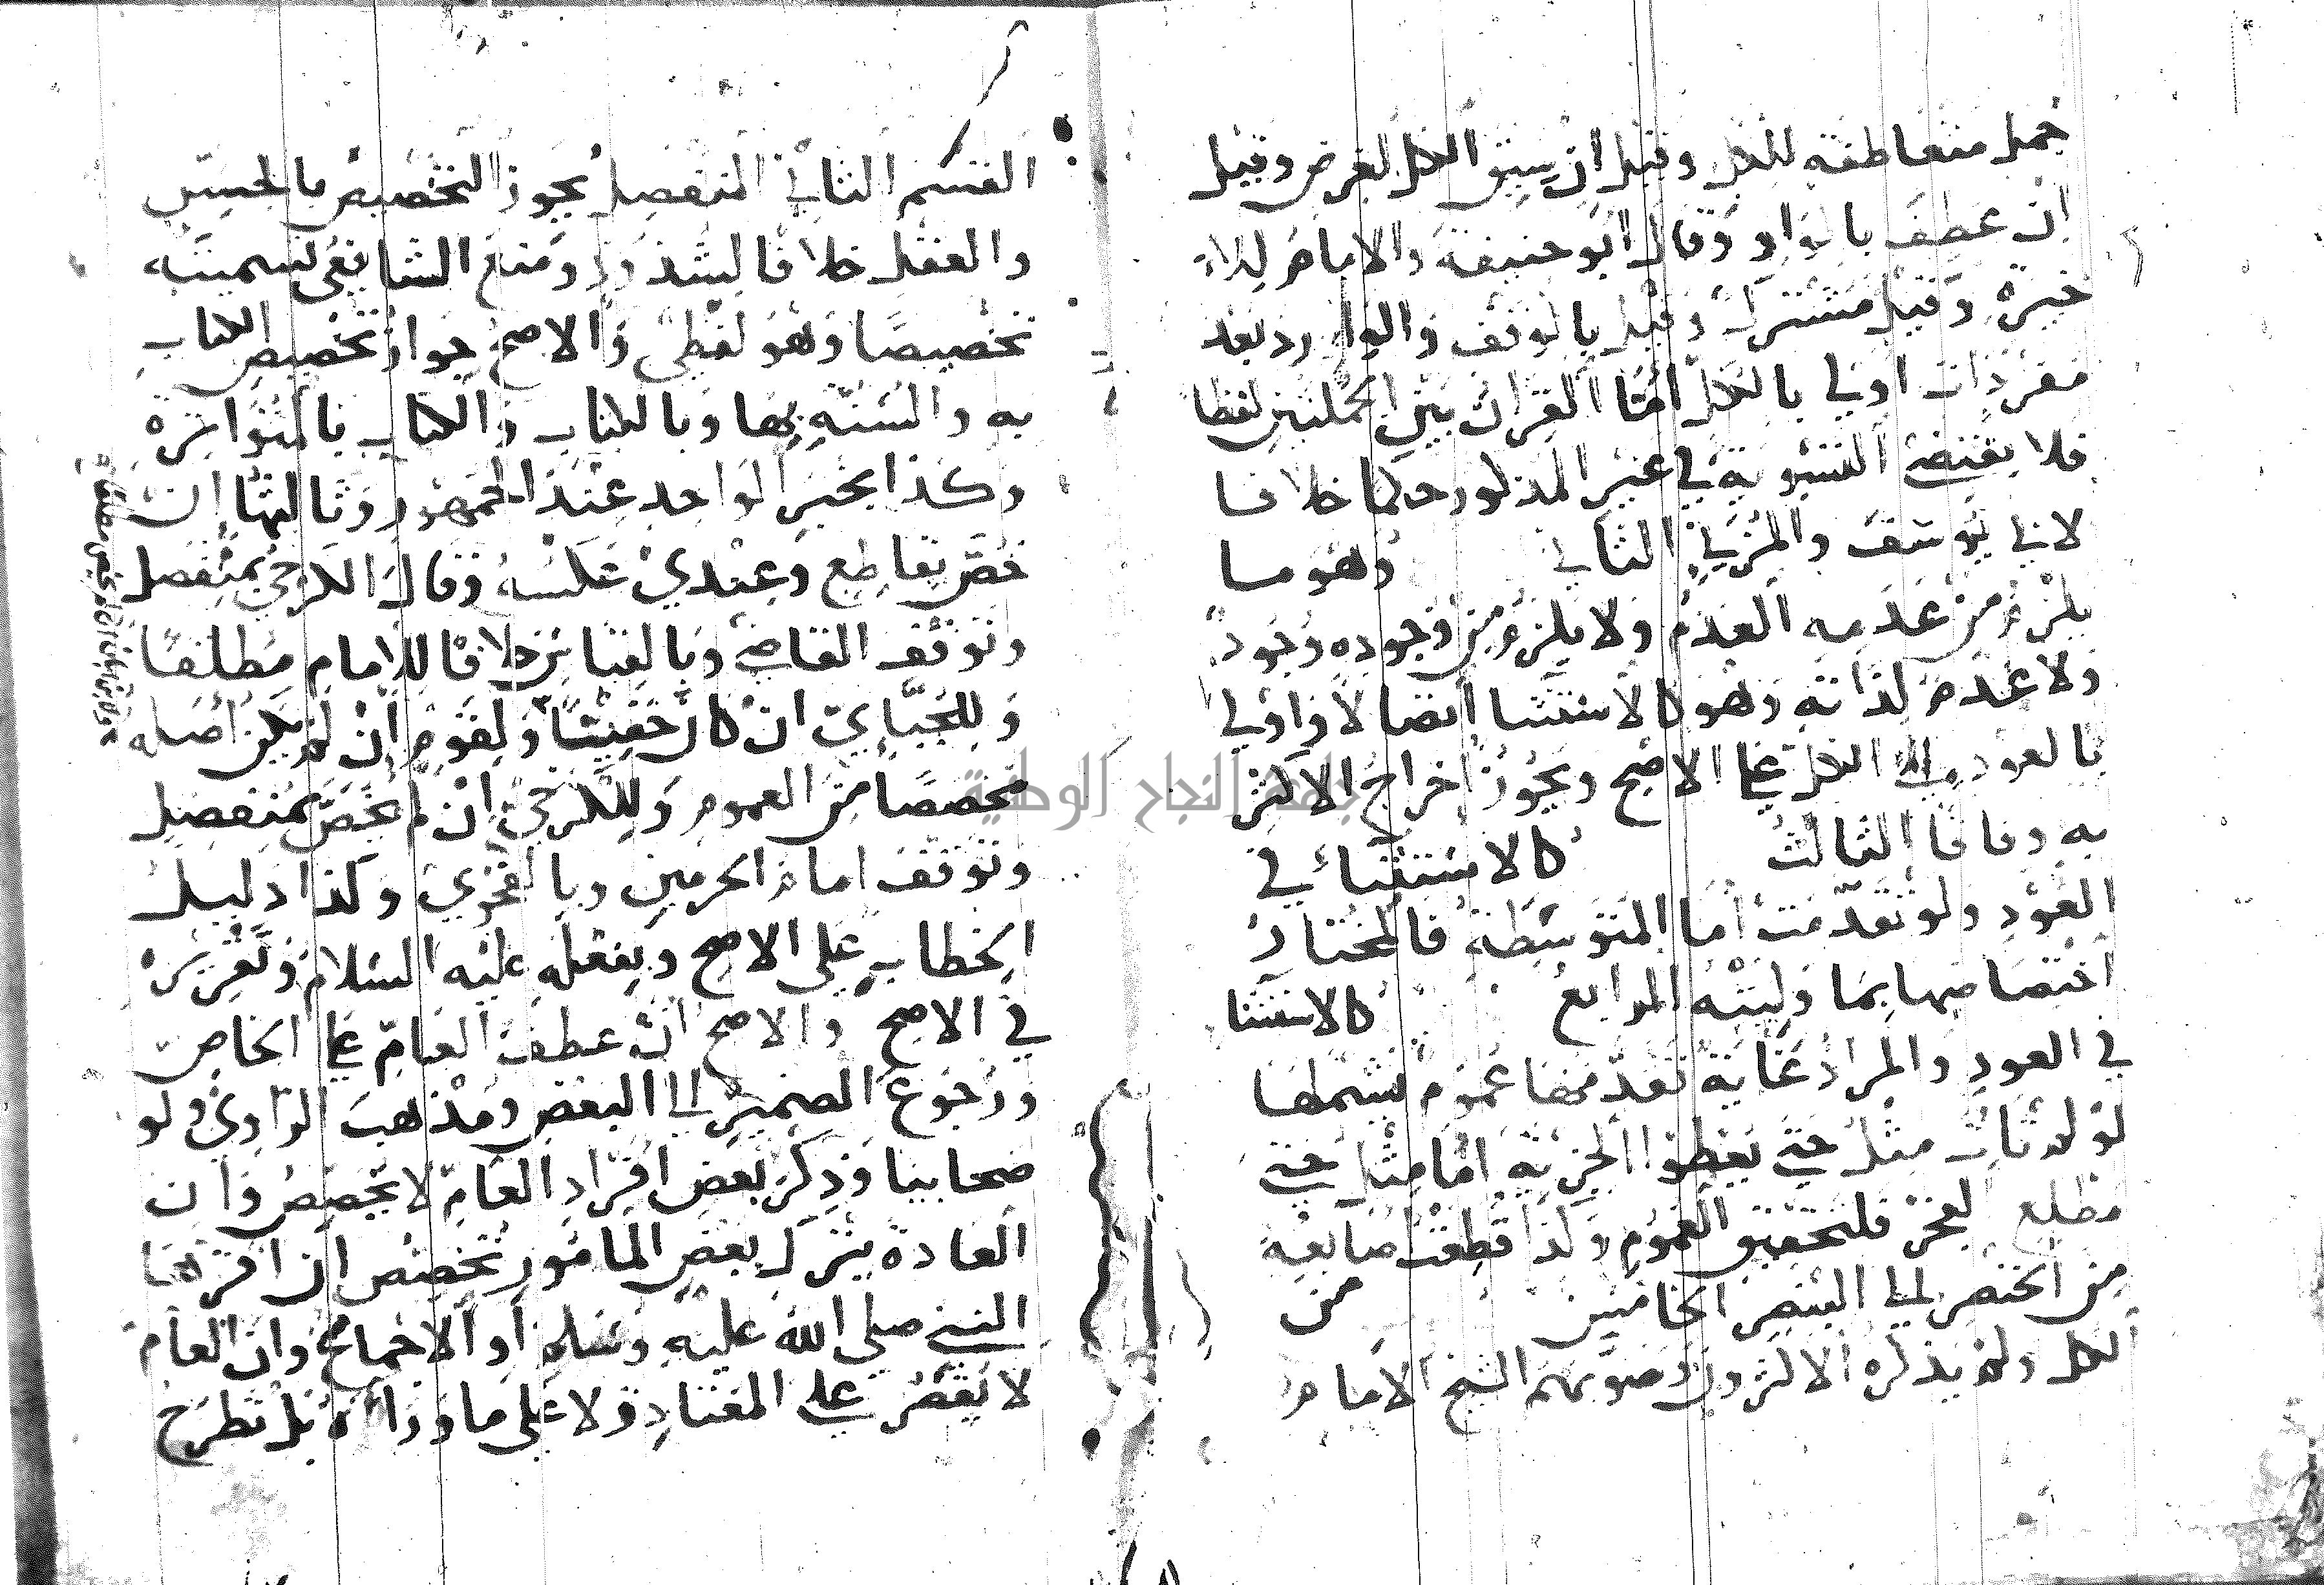 جمل متعاطفة للكل وقيل ان سيق الكل لغرض وقيل
ان عطف بالواو وقال ابو حنيفة والامام للا
خيرة وقيل مشترك وقيل بالوقف والوارد بعد
مفردات اولى بالكل اما القران بين الجملتين لفظا
فلا يقتضي التسوية في غير المذكور حكما خلافا
لابي يوسف والمزني الثاني وهو ما
يلزم من عدمه العدم ولا يلزم من وجوده وجود
ولا عدم لذاته وهو كالاستثنا اتصالا واولى
بالعود الى الكل على الاصح ويجوز اخراج الاكثر
به وفاقا الثالث كالاستثناء في
العود ولو تقدمت اما المتوسطة فالمختار
اختصاصها بما وليته الرابع كالاستثنا
في العود والمراد غاية تقدمها عموم يشملها
لو لم تات مثل حتى يعطوا الجزية اما مثل حتى
مطلع الفجر فلتحقيق العموم وكذا قطعت اصابعه
من الخنصر الى البنصر الخامس من
الكل ولم يذكره الاكثرون وصوبهم الشيخ الامام
القسم الثاني المنفصل يجوز التخصيص بالحس
والعقل خلافا لشذوذ ومنع الشافعي تسميته
تخصيصا وهو لفظي والاصح جواز تخصيص الكتاب
به والسنة بها وبالكتاب والكتاب بالمتواترة
وكذا بخبر الواحد عند الجمهور وثالثها ان
خص بقاطع وعندي عكسه وقال الكرخي بمنفصل
وتوقف القاضي وبالقياس خلافا للامام مطلقا
وللجبائي ان كان خفيا ولقوم ان لم يكن اصله
مخصصا من العموم وللكرخي ان لم يخص بمنفصل
وتوقف امام الحرمين وبالفحوى وكذا دليل
الخطاب على الاصح وبفعله عليه السلام وتقريره
في الاصح والاصح ان عطف العام على الخاص
ورجوع الضمير الى البعض ومذهب الراوي ولو
صحابيا وذكر بعض افراد العام لا يخصص وان
العادة بترك بعض المامور تخصص ان اقرها
النبي صلى الله عليه وسلم او الاجماع وان العام
لا يقصر على المعتاد ولا على ما وراءه بل تطرح
جامعة النجاح الوطنية